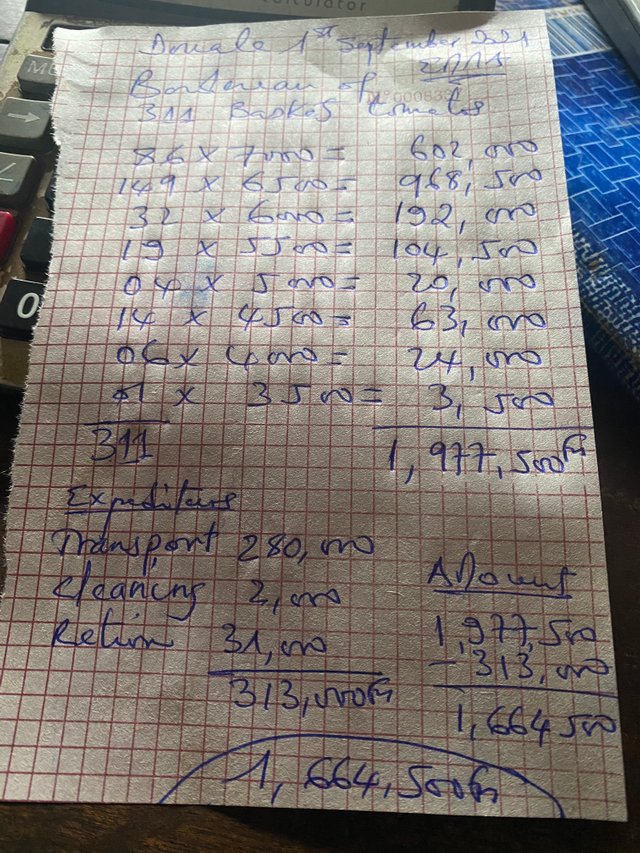 Calculator
Douala 1st September 2021
Bordereau of
311 Baskets tomatos
86 x 7000 = 602,000
149 x 6500 = 968,500
32 x 6000 = 192,000
19 x 5500 = 104,500
04 x 5000 = 20,000
14 x 4500 = 63,000
06 x 4000 = 24,000
01 x 3500 = 3,500
311 1,977,500
Expenditures
Transport 280,000
Cleaning 2,000
Return 31,000
313,000
Amount
1,977,500
- 313,000
1,664 500
1,664,500
0